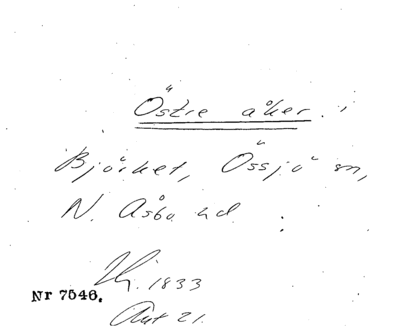 Östre åker.
Bjärket, Össjö sn,
N. Åsbo hd.
Hj. 1833
Nr 7546.
Akt 21.